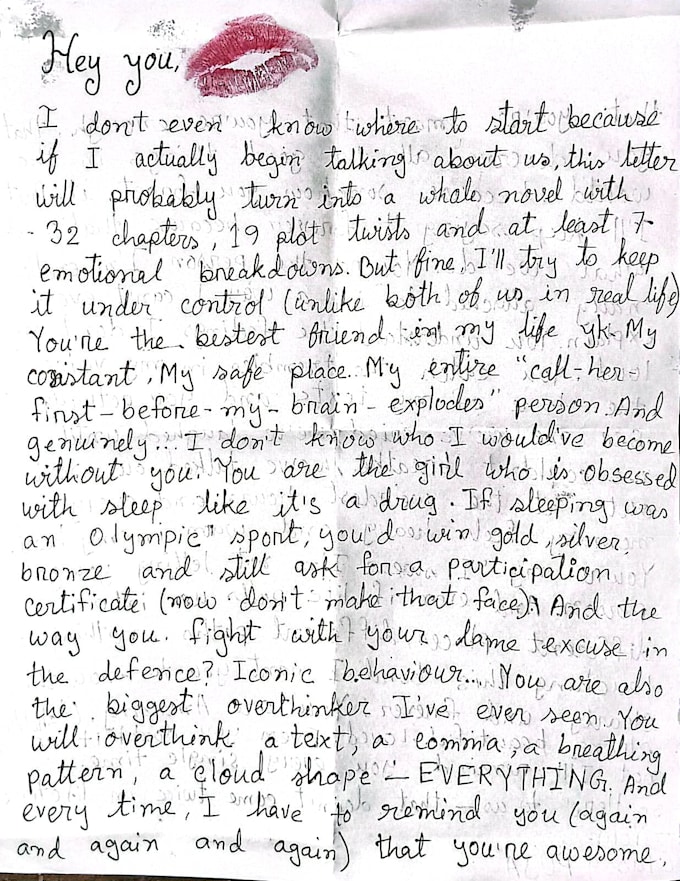 Hey you,
I don't even know where to start because
if I actually begin talking about us, this letter
will probably turn into a whole novel with
32 chapters, 19 plot twists and at least 7
emotional breakdowns. But fine, I'll try to keep
it under control (unlike both of us in real life)
You're the bestest friend in my life yk. My
constant, My safe place. My entire "call-her-
first-before-my-brain-explodes" person. And
genuinely... I don't know who I would've become
without you. You are the girl who is obsessed
with sleep like it's a drug. If sleeping was
an Olympic sport, you'd win gold, silver
bronze and still ask for a participation
certificate (now don't make that face). And the
way you fight with your lame excuse in
the defence? Iconic behaviour... You are also
the biggest overthinker I've ever seen. You
will overthink a text, a comma, a breathing
pattern, a cloud shape — EVERYTHING. And
every time, I have to remind you (again
and again and again) that you're awesome,